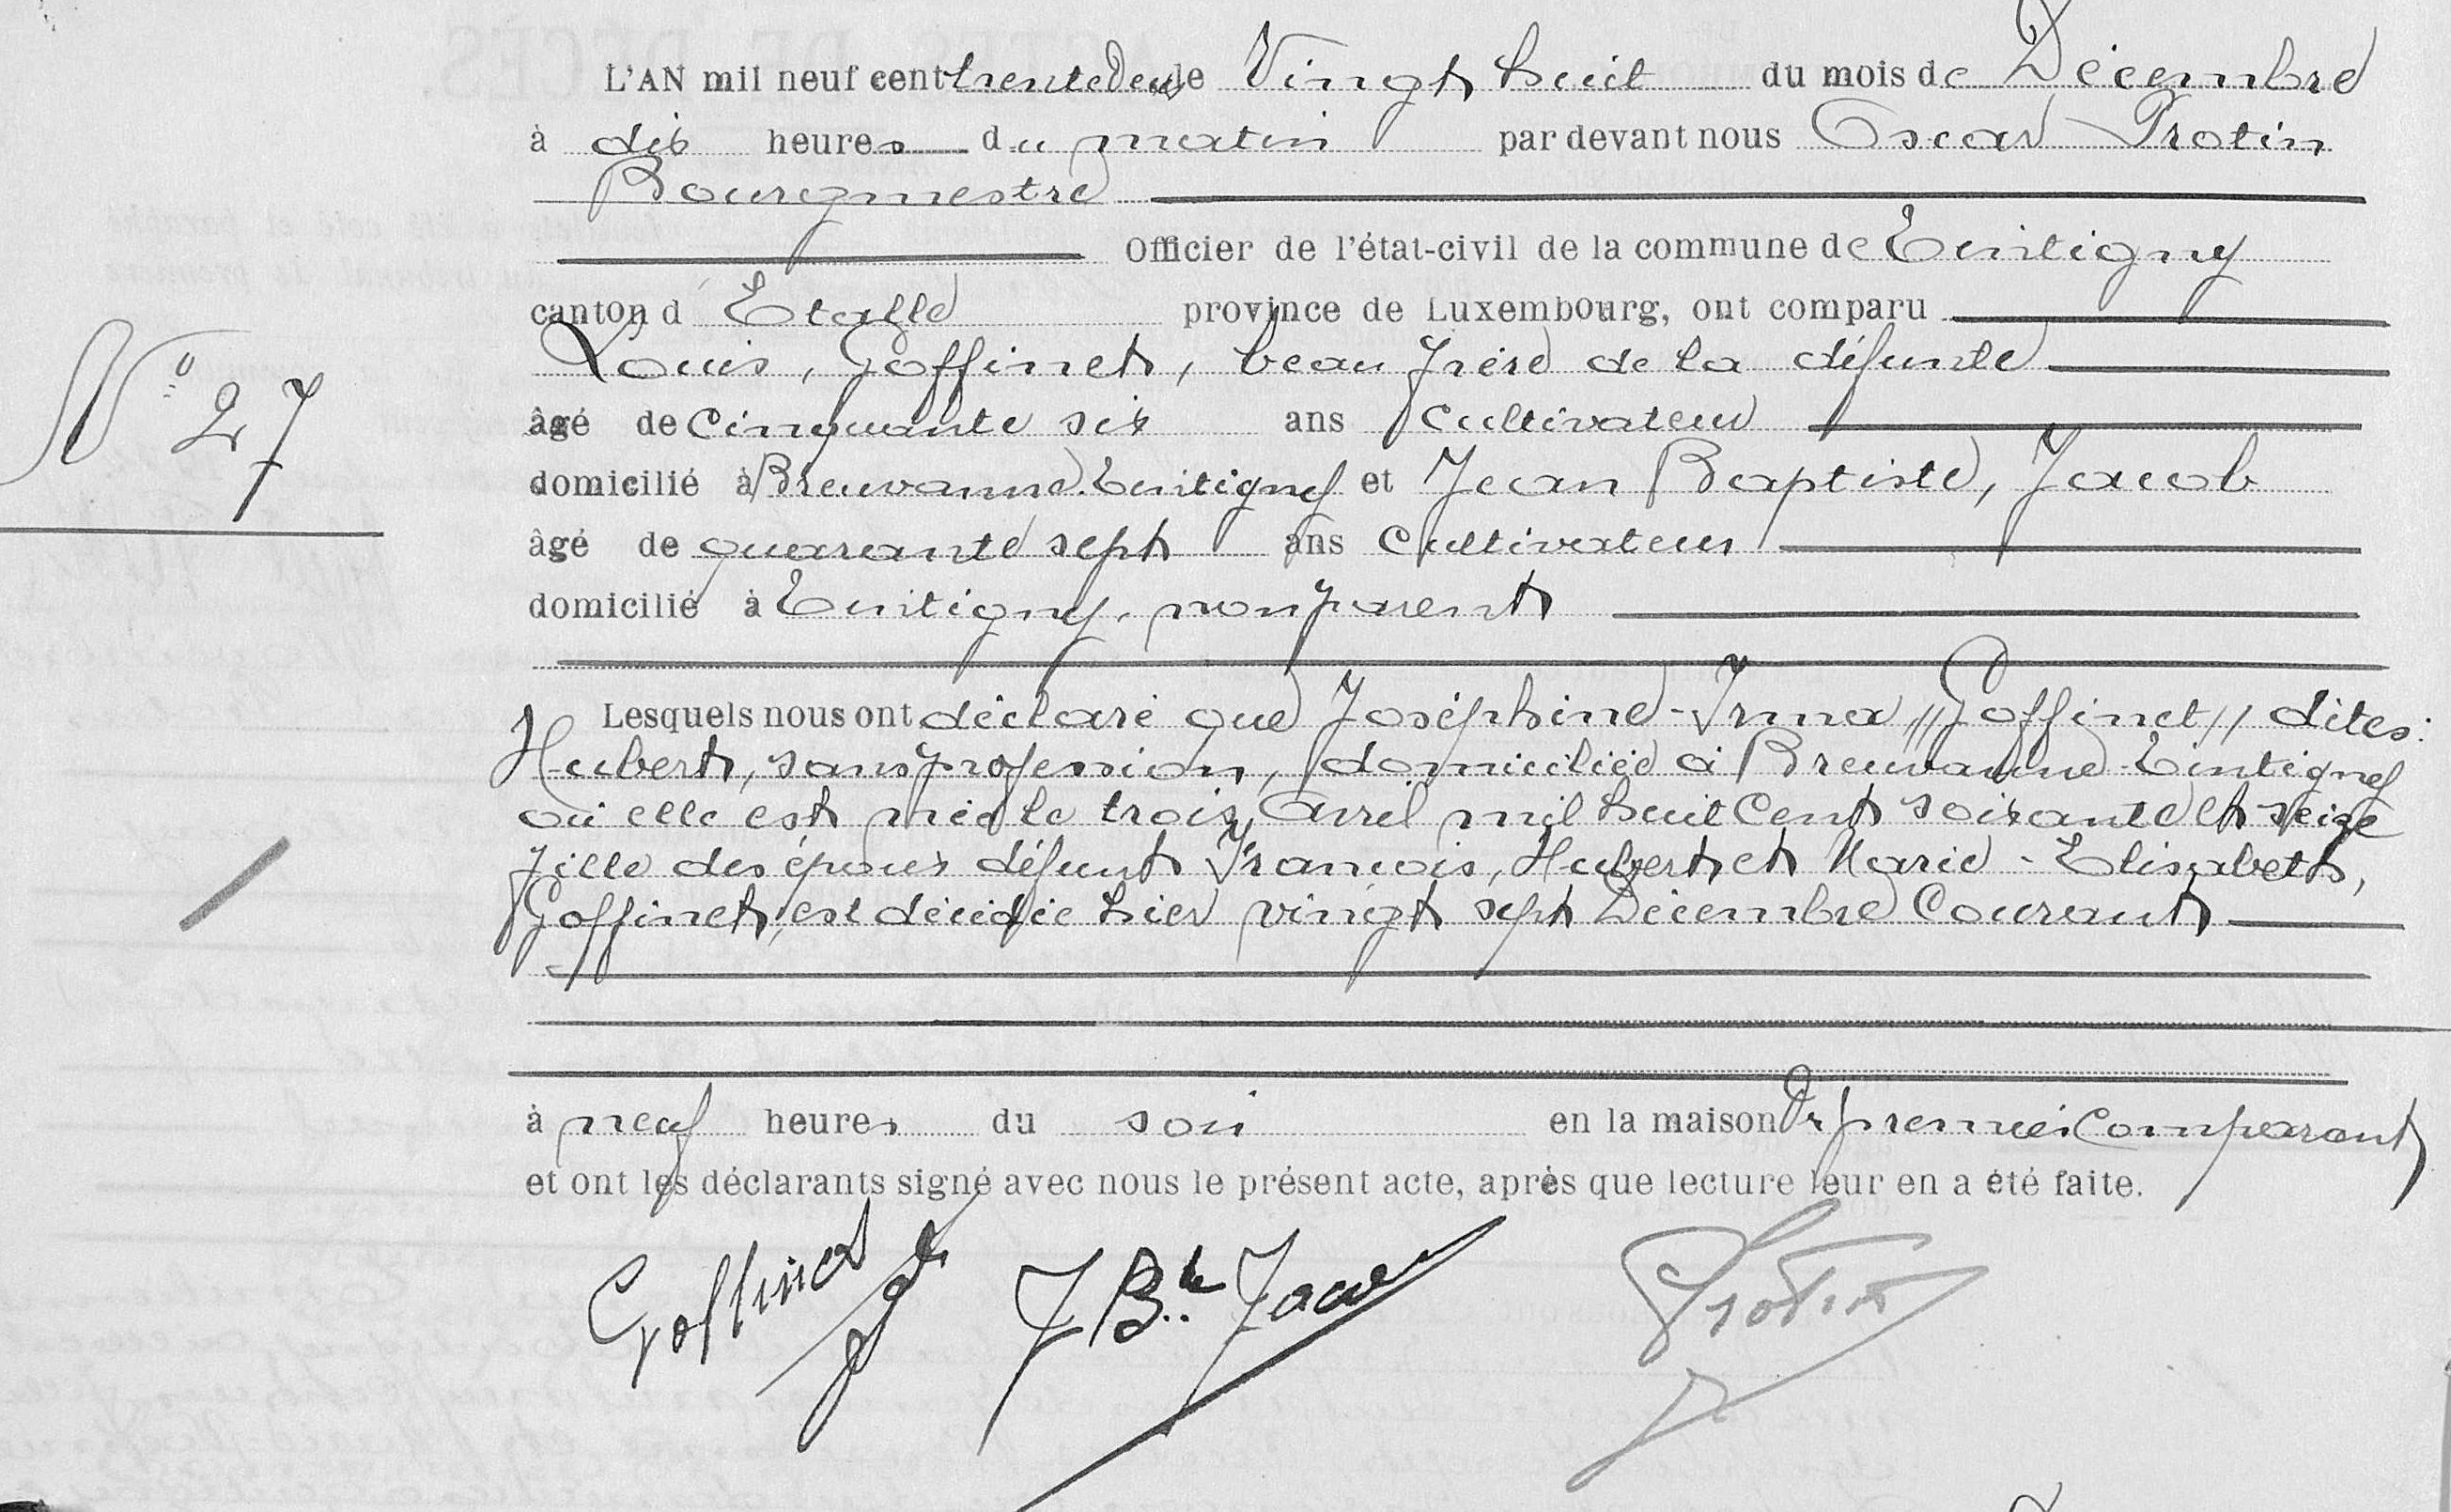 L'AN mil neuf cent trente deux le Vingt huit du mois de Décembre
à dix heures du matin par devant nous Oscar Protin
Bourgmestre
Officier de l'état-civil de la commune de Tintigny
canton d Etalle province de Luxembourg, ont comparu
Louis, Goffinet, beau frère de la défunte
N° 27
âgé de cinquante six ans cultivateur
domicilié à Breuvanne-Tintigny et Jean Baptiste, Jacob
âgé de quarante sept ans cultivateur
domicilié à Tintigny, non parent
Lesquels nous ont déclaré que Joséphine-Irma "Goffinet" dites:
Hubert, sans profession, domiciliée à Breuvanne-Tintigny
où elle est née le trois Avril mil huit cent soixante et seize
fille des époux défunt François, Hubert et Marie-Elisabeth,
Goffinet, est décédée hier vingt sept Décembre Courant
à neuf heures du soir en la maison Dr premier Comparant
et ont les déclarants signé avec nous le présent acte, après que lecture leur en a été faite.
Goffinet J Bte Jacob Protin